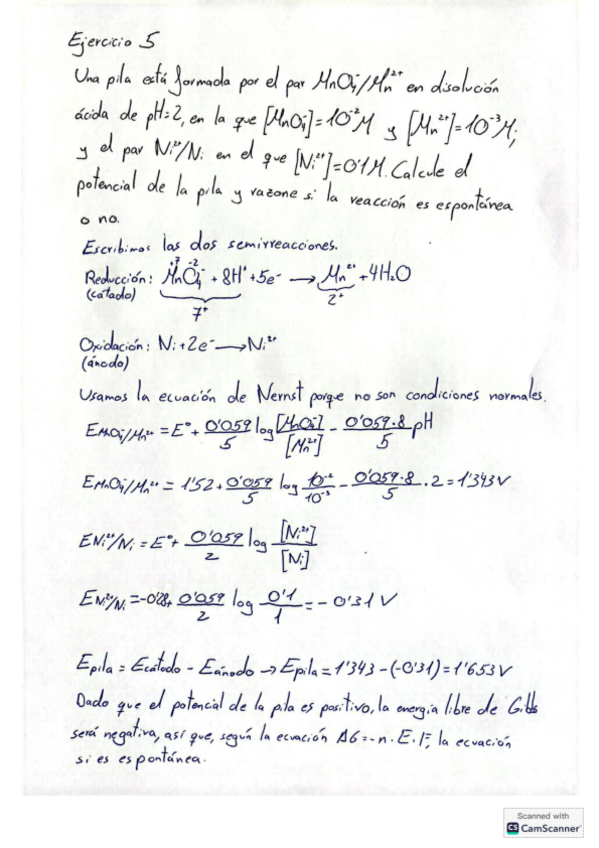 Ejercicio 5
Una pila está formada por el par MnO4⁻/Mn²⁺ en disolución
ácida de pH=2, en la que [MnO4⁻]=10⁻²M y [Mn²⁺]=10⁻³M;
y el par Ni²⁺/Ni en el que [Ni²⁺]=0'1M. Calcule el
potencial de la pila y razone si la reacción es espontánea
o no.
Escribimos las dos semirreacciones.
+7 -2
Reducción: MnO4⁻ + 8H⁺ + 5e⁻ → Mn²⁺ + 4H2O
(cátado) 7⁺ 2⁺
Oxidación: Ni + 2e⁻ → Ni²⁺
(ánodo)
Usamos la ecuación de Nernst porque no son condiciones normales.
E MnO4⁻/Mn²⁺ = E° + 0'059/5 log [MnO4⁻]/[Mn²⁺] - 0'059·8/5 pH
E MnO4⁻/Mn²⁺ = 1'52 + 0'059/5 log 10⁻²/10⁻³ - 0'059·8/5 · 2 = 1'343V
E Ni²⁺/Ni = E° + 0'059/2 log [Ni²⁺]/[Ni]
E Ni²⁺/Ni = -0'28 + 0'059/2 log 0'1/1 = - 0'31 V
Epila = Ecátodo - Eánodo → Epila = 1'343 - (-0'31) = 1'653V
Dado que el potencial de la pila es positivo, la energía libre de Gibbs
será negativa, así que, según la ecuación ΔG = -n·E·F, la ecuación
si es espontánea.
Scanned with
CS CamScanner